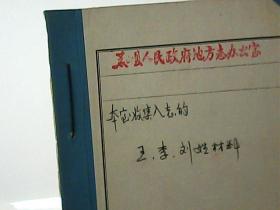 县人民政府地方志办公室
本室收集入志的
王、李、刘姓材料